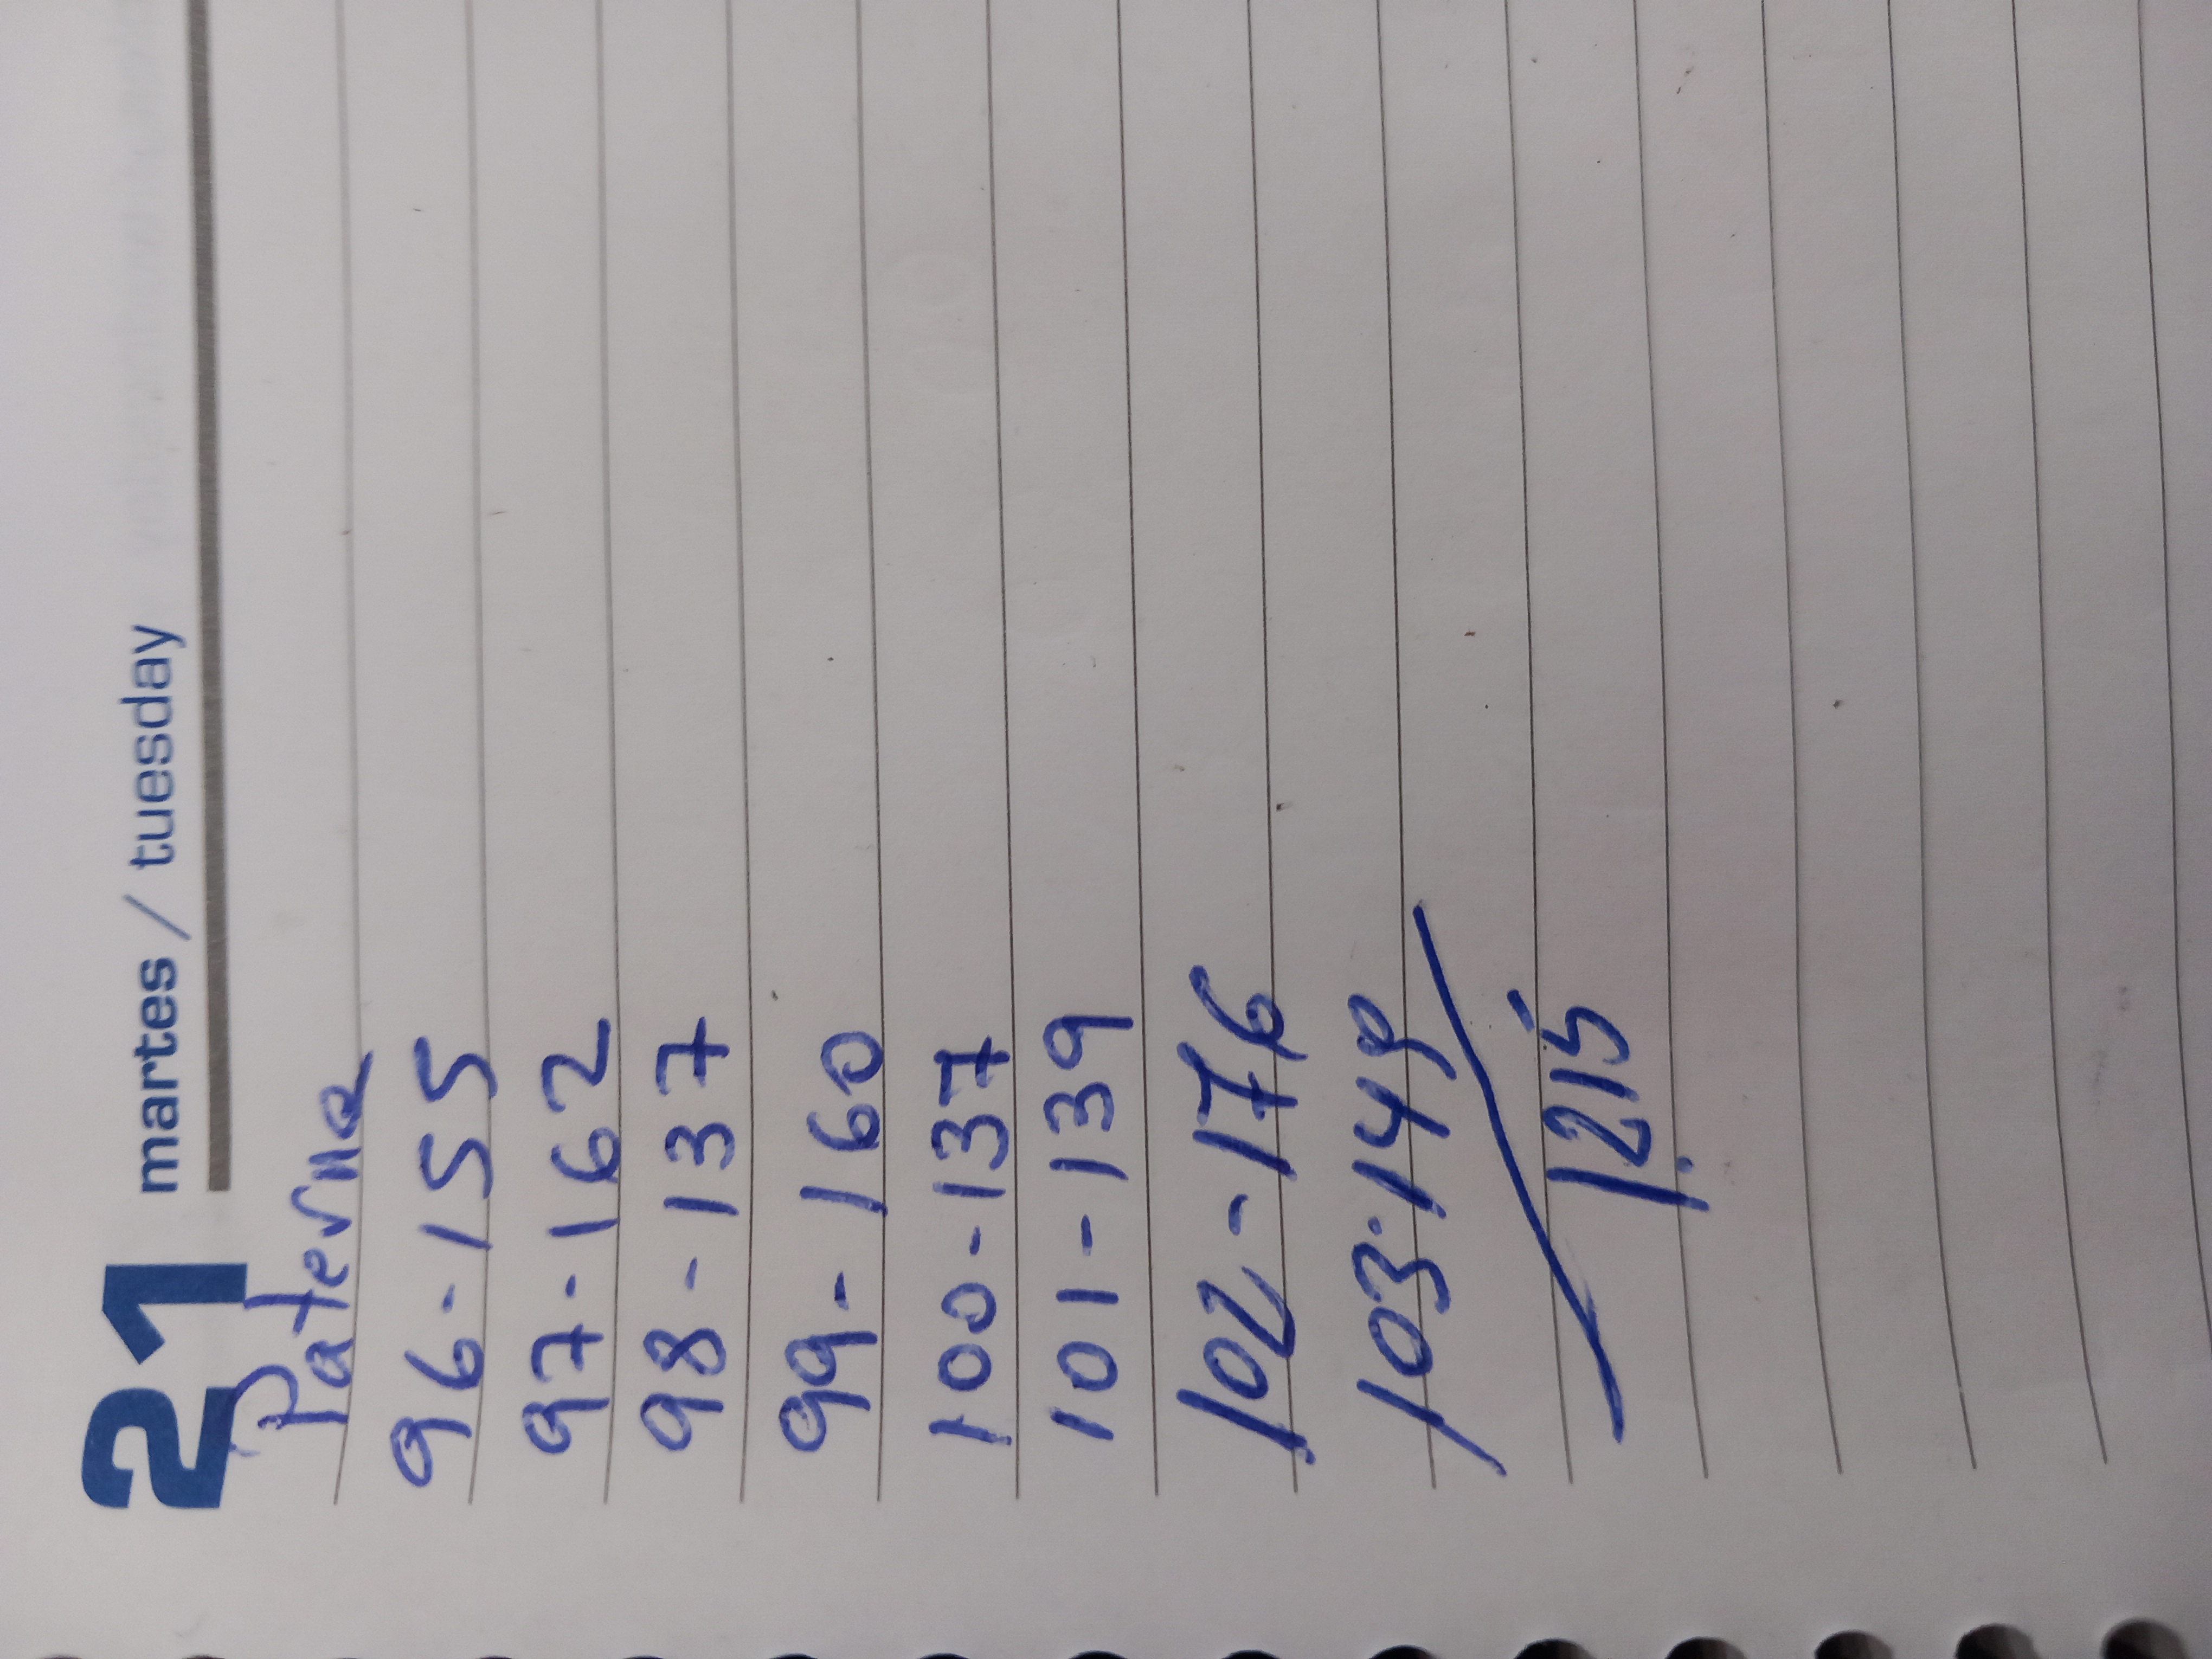 21 martes / tuesday
Paterna
96-155
97-162
98-137
99-160
100-137
101-139
102-176
103-149
1.215